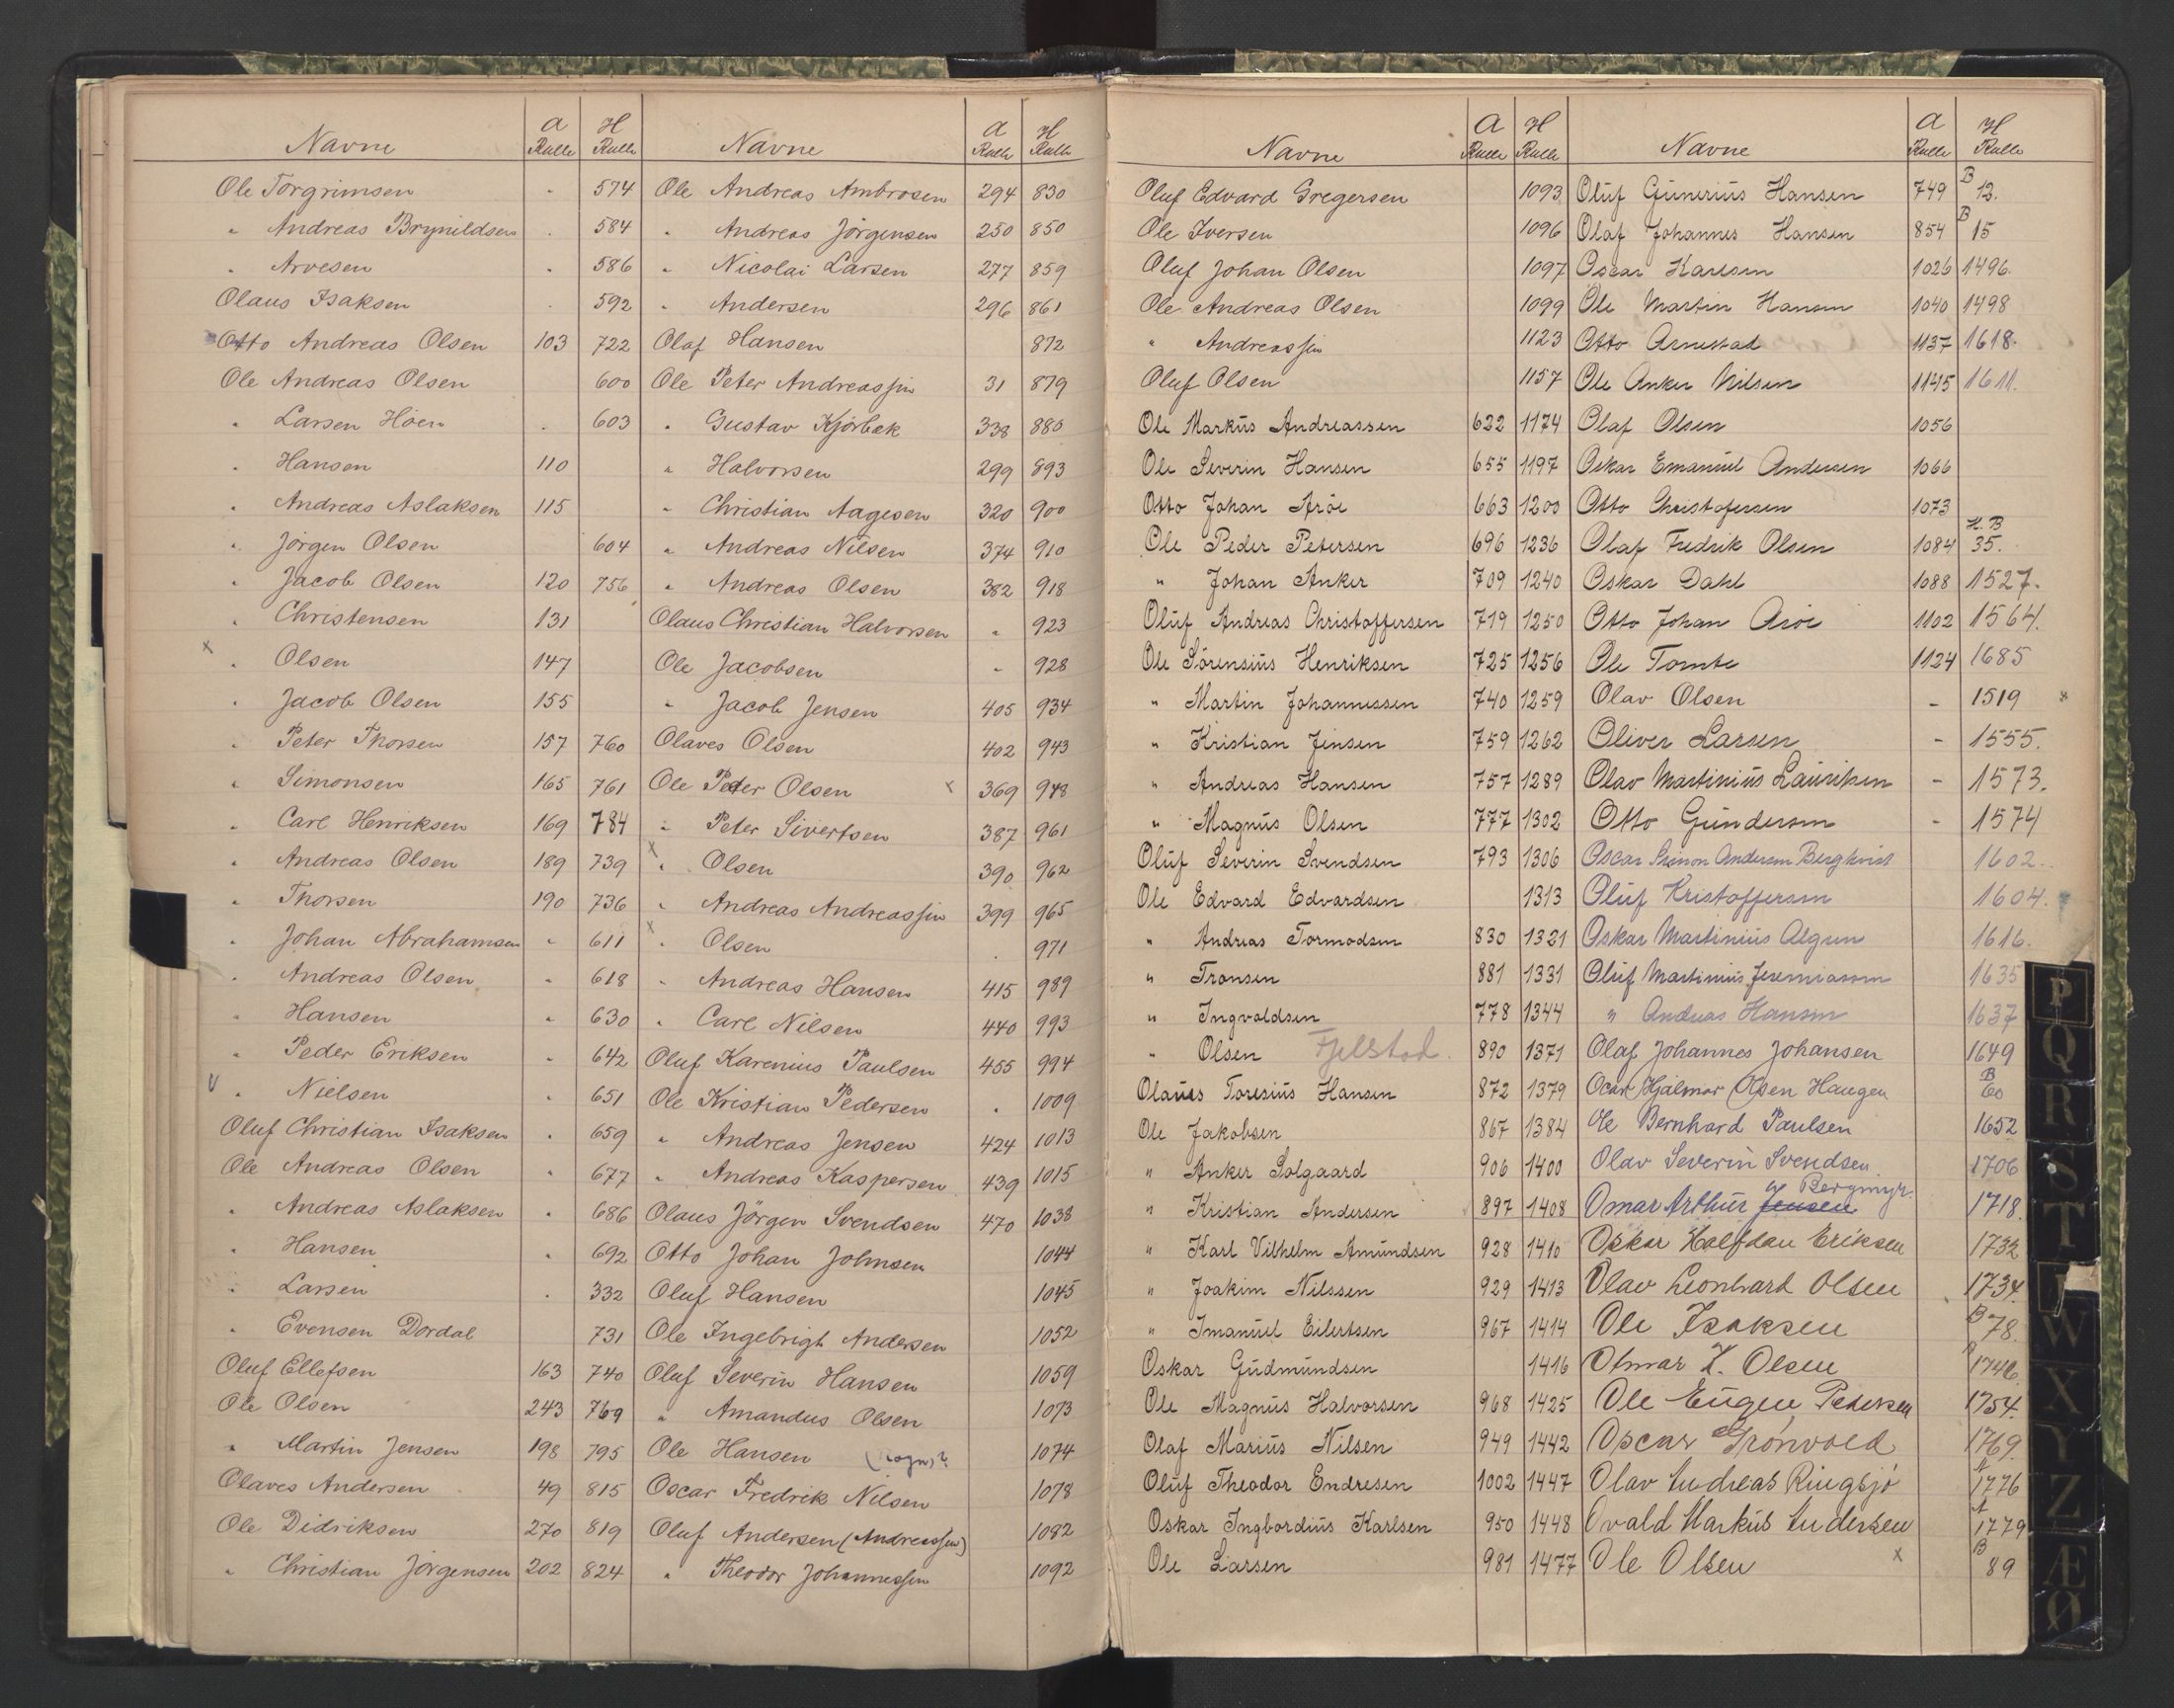 Navne A Rulle H Rulle
Ole Torgrimsen " 574
" Andreas Brynildsen . 584
" Arvesen " 586
Olaus Isaksen . 592
Otto Andreas Olsen 103 722
Ole Andreas Olsen 600
" Larsen Höen . 603
" Hansen 110
" Andreas Aslaksen 115
" Jörgen Olsen 604
" Jacob Olsen 120 756
" Christensen 131
x " Olsen 147
" Jacob Olsen 155
" Peter Thorsen 157 760
" Simonsen 165 761
" Carl Henriksen 169 784
" Andreas Olsen 189 739
" Thorsen 190 736
" Johan Abrahamsen " 611
" Andreas Olsen " 618
" Hansen " 630
" Peder Eriksen " 642
v " Nielsen " 651
Oluf Christian Isaksen " 659
Ole Andreas Olsen " 677
" Andreas Aslaksen " 686
" Hansen " 692
" Larsen . 332
" Evensen Dordal 731
Oluf Ellefsen 163 740
Ole Olsen 243 769
" Martin Jensen 198 795
Olaves Andersen 49 815
Ole Didriksen 270 819
" Christian Jörgensen 202 824
Navne A Rulle H Rulle
Ole Andreas Ambrosen 294 830
" Andreas Jörgensen 250 850
" Nicolai Larsen 277 859
" Andersen 296 861
Olaf Hansen 872
Ole Peter Andreassen 31 879
" Gustav Kjörbek 338 880
" Halvorsen 299 893
" Christian Aagesen 320 900
" Andreas Nilsen 374 910
" Andreas Olsen 382 918
Olaus Christian Halvorsen " 923
Ole Jacobsen " 928
" Jacob Jensen 405 934
Olaves Olsen 402 943
Ole Peder Olsen x 369 948
" Peter Sivertsen 387 961
x " Olsen 390 962
" Andreas Andreassen 399 965
x " Olsen . 971
" Andreas Hansen 415 989
" Carl Nilsen 440 993
Oluf Karenius Paulsen 455 994
Ole Kristian Pedersen . 1009
" Andreas Jensen 424 1013
" Andreas Kaspersen 439 1015
Olaus Jörgen Svendsen 470 1038
Otto Johan Johnsen 1044
Oluf Hansen 1045
Ole Ingebrigt Andersen 1052
Oluf Severin Hansen 1059
" Amandus Olsen 1073
Ole Hansen 1074
Oscar Fredrik Nilsen 1078
Oluf Andersen (Andreassen) 1082
" Theodor Johannessen 1092
Navne A Rulle H Rulle
Oluf Edvard Gregersen 1093
Ole Iversen 1096
Oluf Johan Olsen 1097
Ole Andreas Olsen 1099
" Andreassen 1123
Oluf Olsen 1157
Ole Markus Andreassen 622 1174
Ole Severin Hansen 655 1197
Otto Johan Aröe 663 1200
Ole Peder Petersen 696 1236
" Johan Anker 709 1240
Oluf Andreas Christoffersen 719 1250
Ole Sörensius Henriksen 725 1256
" Martin Johannessen 740 1259
" Kristian Jensen 759 1262
" Andreas Hansen 757 1289
" Magnus Olsen 777 1302
Oluf Severin Svendsen 793 1306
Ole Edvard Edvardsen 1313
" Andreas Tormodsen 830 1321
" Tronsen 881 1331
" Ingvaldsen 778 1344
" Olsen Fjelstad. 890 1371
Olaues Toresius Hansen 872 1379
Ole Jakobsen 867 1384
" Anker Solgaard 906 1400
" Kristian Andersen 897 1408
" Karl Vilhelm Amundsen 928 1410
" Joakim Nilssen 929 1413
" Imanuel Eilertsen 967 1414
Oskar Gudmundsen 1416
Ole Magnus Halvorsen 968 1425
Olaf Marius Nilsen 949 1442
Oluf Theodor Endresen 1002 1447
Oskar Ingbordius Karlsen 950 1448
Ole Larsen 981 1477
Navne A Rulle H Rulle
Oluf Gunerius Hansen 749 B 12.
Olaf Johannes Hansen 854 B 15
Oscar Karlsen 1026 1496.
Ole Martin Hansen 1040 1498
Otto Arnestad 1137 1618.
Ole Anker Nilsen 1145 1611.
Olaf Olsen 1056
Oskar Emanuel Andersen 1066
Otto Christofersen 1073
Olaf Fredrik Olsen 1084 H.B 35.
Oskar Dahl 1088 1527.
Otto Johan Aröe 1102 1564.
Ole Tomte 1124 1685
Olav Olsen - 1519 x
Oliver Larsen - 1555.
Olav Martinius Lauritsen - 1573.
Otto Gundersen - 1574
Oscar Simon Andersen Bergkvist 1602.
Oluf Kristoffersen 1604.
Oskar Martinius Algren 1616.
Oluf Martinius Jeremiassen 1635
" Andreas Hansen 1637
Olaf Johannes Johansen 1649
Ocar Hjalmar Olsen Haugen B 60
Ole Bernhard Paulsen 1652
Olav Severin Svendsen. 1706
Omar Arthur Jensen Bergmyr. 1718.
Oskar Halfdan Eriksen 1732
Olav Leonhard Olsen 1734.
Ole Isaksen B 78.
Olmar K. Olsen 1746.
Ole Eugen Pedersen 1754.
Oscar Grönvold 1769.
Olav Andreas Ringsjö A 1776
Ovald Markus Andersen A 1779
Ole Olsen x B 89
P
Q
R
S
T
W
X
Y
Z
Æ
Ø